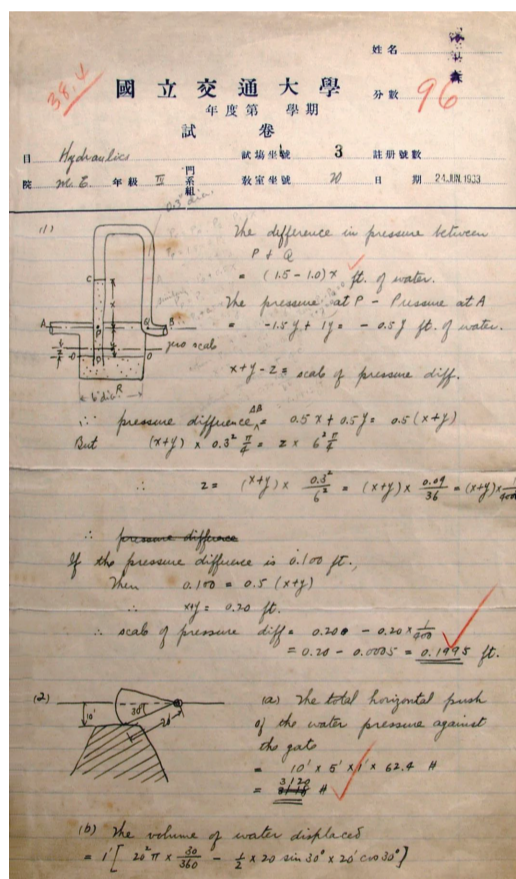 姓名
38.4
國立交通大學
分數 96
年度第 學期
試卷
目 Hydraulics 試場坐號 3 註冊號數
院 M.E. 年級 IV 門系組 教室坐號 20 日期 24 JUN. 1933
0.3" dia.
(1) The difference in pressure between
P & Q
= (1.5 - 1.0)x ft. of water.
The pressure at P - Pressure at A
= -1.5y + 1y = -0.5y ft. of water.
x+y-z = scale of pressure diff.
C
x
A
P
Q
B
zero scale
O
O
R
6" dia.
∴ pressure difference AB = 0.5x + 0.5y = 0.5 (x+y)
But (x+y) × 0.3² π/4 = z × 6² π/4
∴ z = (x+y) × 0.3²/6² = (x+y) × 0.09/36 = (x+y) × 1/400
∴ pressure difference
If the pressure difference is 0.100 ft.,
Then 0.100 = 0.5 (x+y)
x+y = 0.20 ft.
∴ scale of pressure diff = 0.200 - 0.20 × 1/400
= 0.20 - 0.0005 = 0.1995 ft.
(2) (a) The total horizontal push
of the water pressure against
the gate
= 10' × 5' × 1' × 62.4 #
= 3120 #
10'
30°
20'
(b) The volume of water displaced
= 1' [ 20² π × 30/360 - 1/2 × 20 sin 30° × 20' cos 30° ]